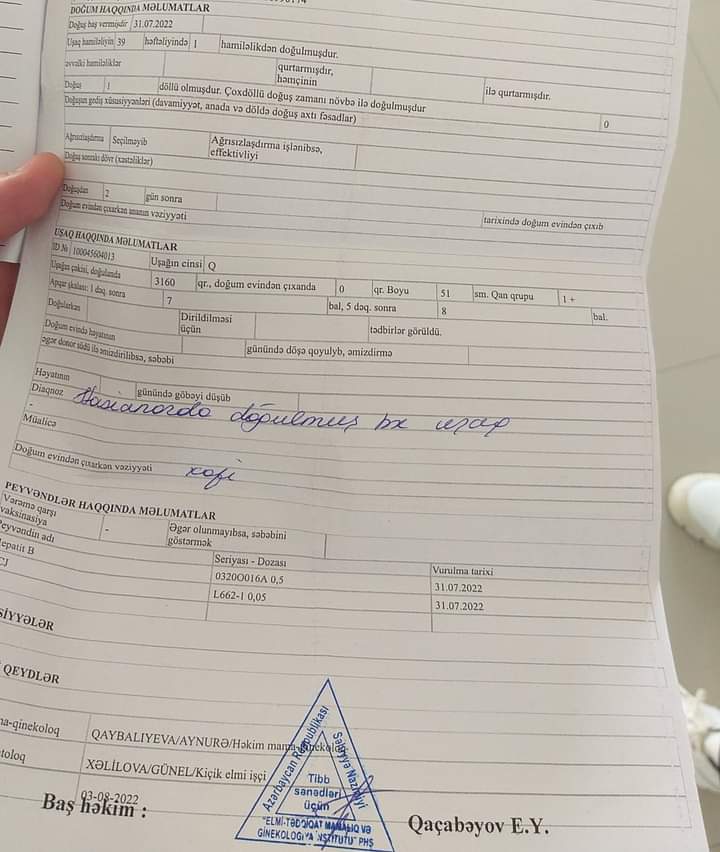 DOĞUM HAQQINDA MƏLUMATLAR
Doğuş baş vermişdir 31.07.2022
Uşaq hamiləliyin 39 həftəliyində 1 hamiləlikdən doğulmuşdur.
əvvəlki hamiləliklər qurtarmışdır, həmçinin ilə qurtarmışdır.
Doğuş 1 döllü olmuşdur. Çoxdöllü doğuş zamanı növbə ilə doğulmuşdur 0
Doğuşun gediş xüsusiyyətləri (davamiyyət, anada və döldə doğuş axtı fəsadlar)
Ağrısızlaşdırma Seçilməyib Ağrısızlaşdırma işlənibsə, effektivliyi
Doğuş sonrakı dövr (xəstəliklər)
Doğuşdan 2 gün sonra tarixində doğum evindən çıxıb
Doğum evindən çıxarkən ananın vəziyyəti
UŞAQ HAQQINDA MƏLUMATLAR
ID № 100045604013 Uşağın cinsi Q
Uşağın çəkisi, doğulanda 3160 qr., doğum evindən çıxanda 0 qr. Boyu 51 sm. Qan qrupu 1 +
Apqar şkalası: 1 dəq. sonra 7 bal, 5 dəq. sonra 8 bal.
Doğularkən Dirildilməsi üçün tədbirlər görüldü.
Doğum evində həyatının günündə döşə qoyulyb, əmizdirmə
əgər donor südü ilə əmizdirilibsə, səbəbi
Həyatının günündə göbəyi düşüb
Diaqnoz doğulmuş uşaq
-
Müalicə
Doğum evindən çıxarkən vəziyyəti kafi
PEYVƏNDLƏR HAQQINDA MƏLUMATLAR
Vərəmə qarşı vaksinasiya - Əgər olunmayıbsa, səbəbini göstərmək
Peyvəndin adı Seriyası - Dozası Vurulma tarixi
Hepatit B 0320O016A 0,5 31.07.2022
CJ L662-1 0,05 31.07.2022
SİYYƏLƏR
QEYDLƏR
na-qinekoloq QAYBALIYEVA/AYNURƏ/Həkim mama-ginekoloq
toloq XƏLİLOVA/GÜNEL/Kiçik elmi işçi
03-08-2022
Baş həkim : Qaçabəyov E.Y.
Azərbaycan Respublikası
Səhiyyə Nazirliyi
Tibb
sənədləri
üçün
"ELMİ-TƏDQİQAT MAMALIQ VƏ
GİNEKOLOGİYA İNSTİTUTU" PHŞ